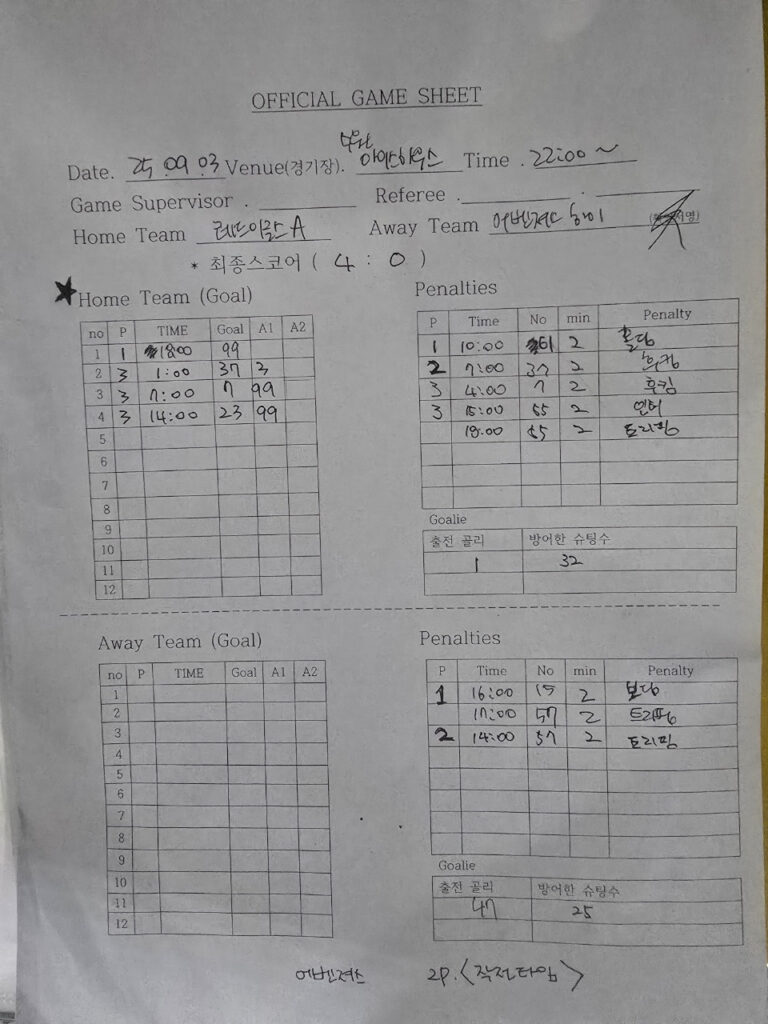 OFFICIAL GAME SHEET
Date. 25. 09. 03 Venue(경기장). 아이스하우스 Time . 22:00 ~
Game Supervisor . Referee . .
Home Team 레드이글스 A Away Team 어벤져스 하키
* 최종스코어 ( 4 : 0 )
★ Home Team (Goal)
no P TIME Goal A1 A2
1 1 18:00 99
2 3 1:00 37 3
3 3 7:00 7 99
4 3 14:00 23 99
5
6
7
8
9
10
11
12
Penalties
P Time No min Penalty
1 10:00 61 2 홀딩
2 7:00 37 2 후킹
3 4:00 7 2 후킹
3 15:00 55 2 인터
18:00 55 2 트리핑
Goalie
출전 골리 방어한 슈팅수
1 32
Away Team (Goal)
no P TIME Goal A1 A2
1
2
3
4
5
6
7
8
9
10
11
12
Penalties
P Time No min Penalty
1 16:00 15 2 보딩
17:00 57 2 트리핑
2 14:00 57 2 트리핑
Goalie
출전 골리 방어한 슈팅수
47 25
어벤져스 2P. <작전타임>